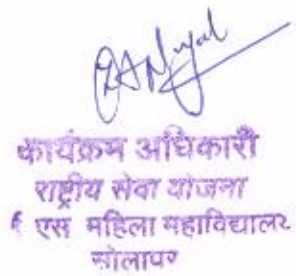 कार्यक्रम अधिकारी
राष्ट्रीय सेवा योजना
एस महिला महाविद्यालय
सोलापर